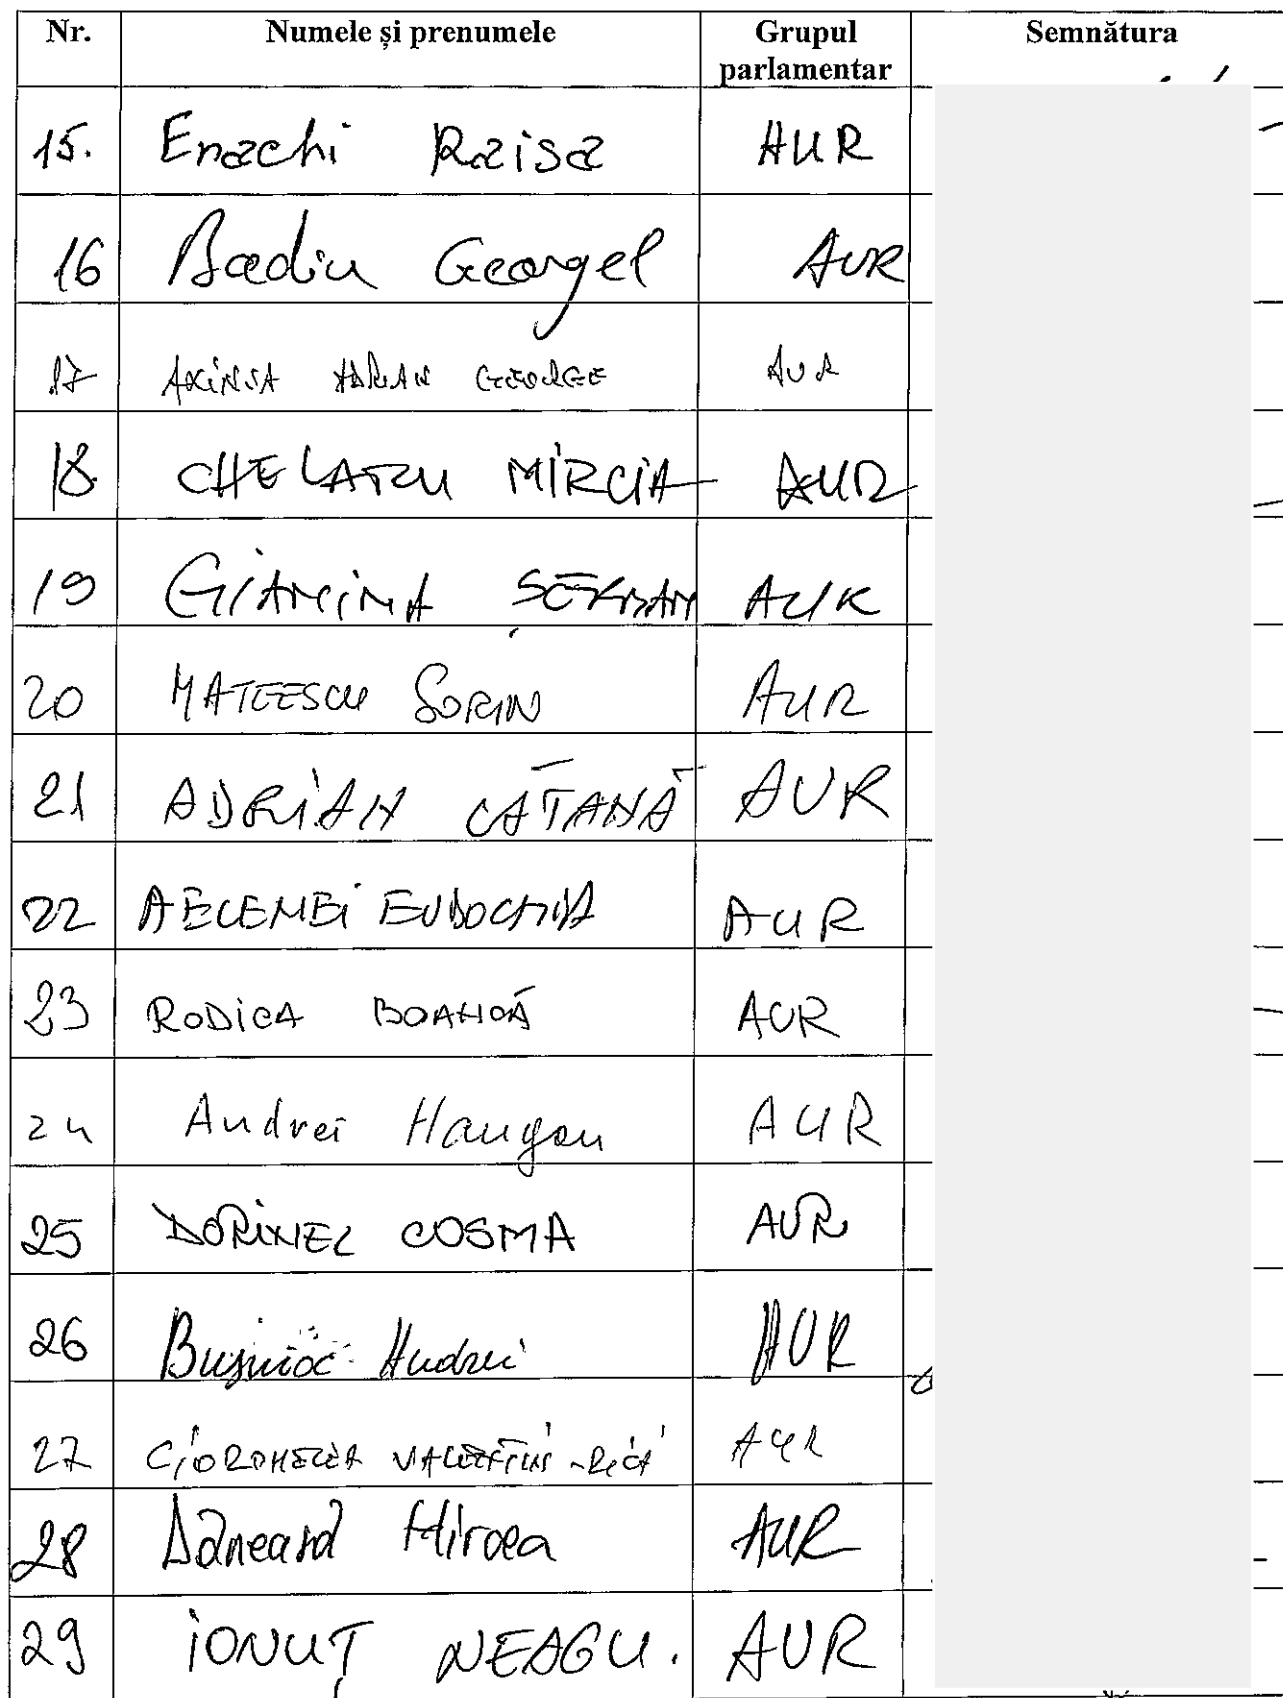 Nr. Numele și prenumele Grupul parlamentar Semnătura
15. Enachi Raisa AUR
16 Badiu Georgel AUR
17 AXINIA ADRIAN GEORGE AUR
18 CHELARU MIRCIA AUR
19 GIANINA ȘERBAN AUR
20 MATEESCU SORIN AUR
21 ADRIAN CĂTANĂ AUR
22 AELENEI EVDOCHIA AUR
23 RODICA BOANCĂ AUR
24 Andrei AUR
25 DORINEL COSMA AUR
26 Bușnioc Andrei AUR
27 AUR
28 Mircea AUR
29 IONUȚ NEAGU. AUR